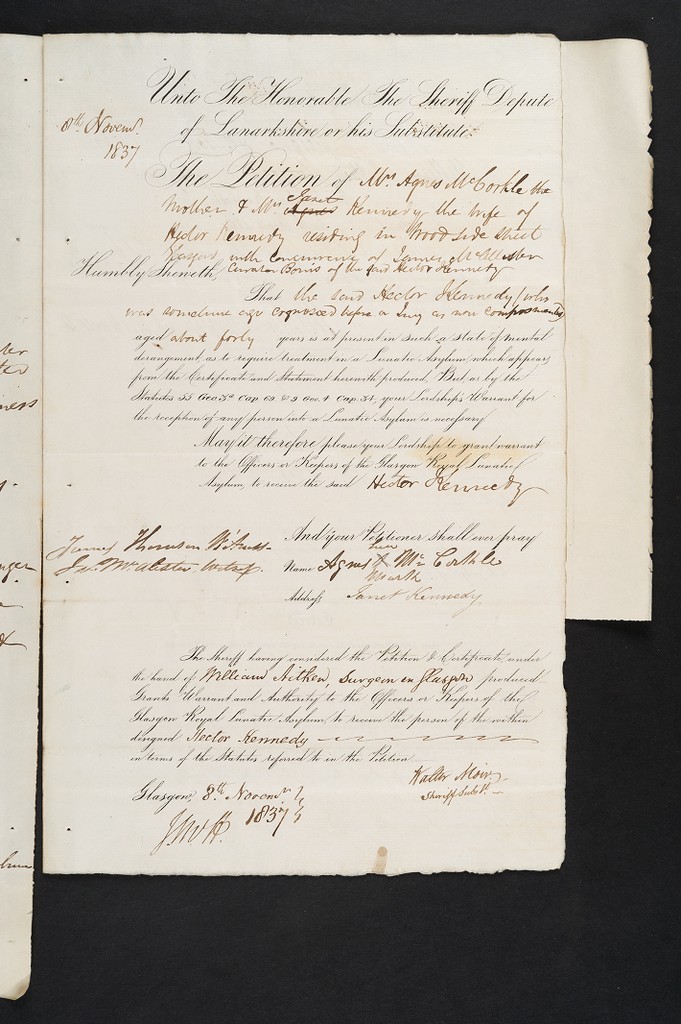 8th Novemr.
1837
Unto The Honorable The Sheriff Depute
of Lanarkshire or his Substitute.
The Petition of Mrs Agnes McCorkle the
Mother & Mrs Agnes Janet Kennedy the wife of
Hector Kennedy residing in Woodside Street
Glasgow with concurrence of James McAllister
Humbly Sheweth, Curator Bonis of the said Hector Kennedy
That the said Hector Kennedy (who
was sometime ago cognosced before a Jury as non compos mentis)
aged about forty years is at present in such a state of mental
derangement, as to require treatment in a Lunatic Asylum, which appears
from the Certificate and Statement herewith produced. But as by the
Statutes 55 Geo. 3d Cap. 69. & 9 Geo. 4 Cap. 34, your Lordship's Warrant for
the reception of any person into a Lunatic Asylum is necessary
May it therefore please your Lordship to grant warrant
to the Officers or Keepers of the Glasgow Royal Lunatic
Asylum, to receive the said Hector Kennedy
And your Petitioner shall ever pray
James Thomson Witness
Js. McAlister witness
her
Name Agnes X McCorkle
Mark
Address Janet Kennedy
The Sheriff having considered the Petition & Certificate, under
the hand of William Aitken, Surgeon in Glasgow produced
Grants Warrant and Authority to the Officers or Keepers of the
Glasgow Royal Lunatic Asylum, to receive the person of the within
designed Hector Kennedy
in terms of the Statutes referred to in the Petition
Walter Moir
Sheriff Subt.
Glasgow, 8th Novemr
1837